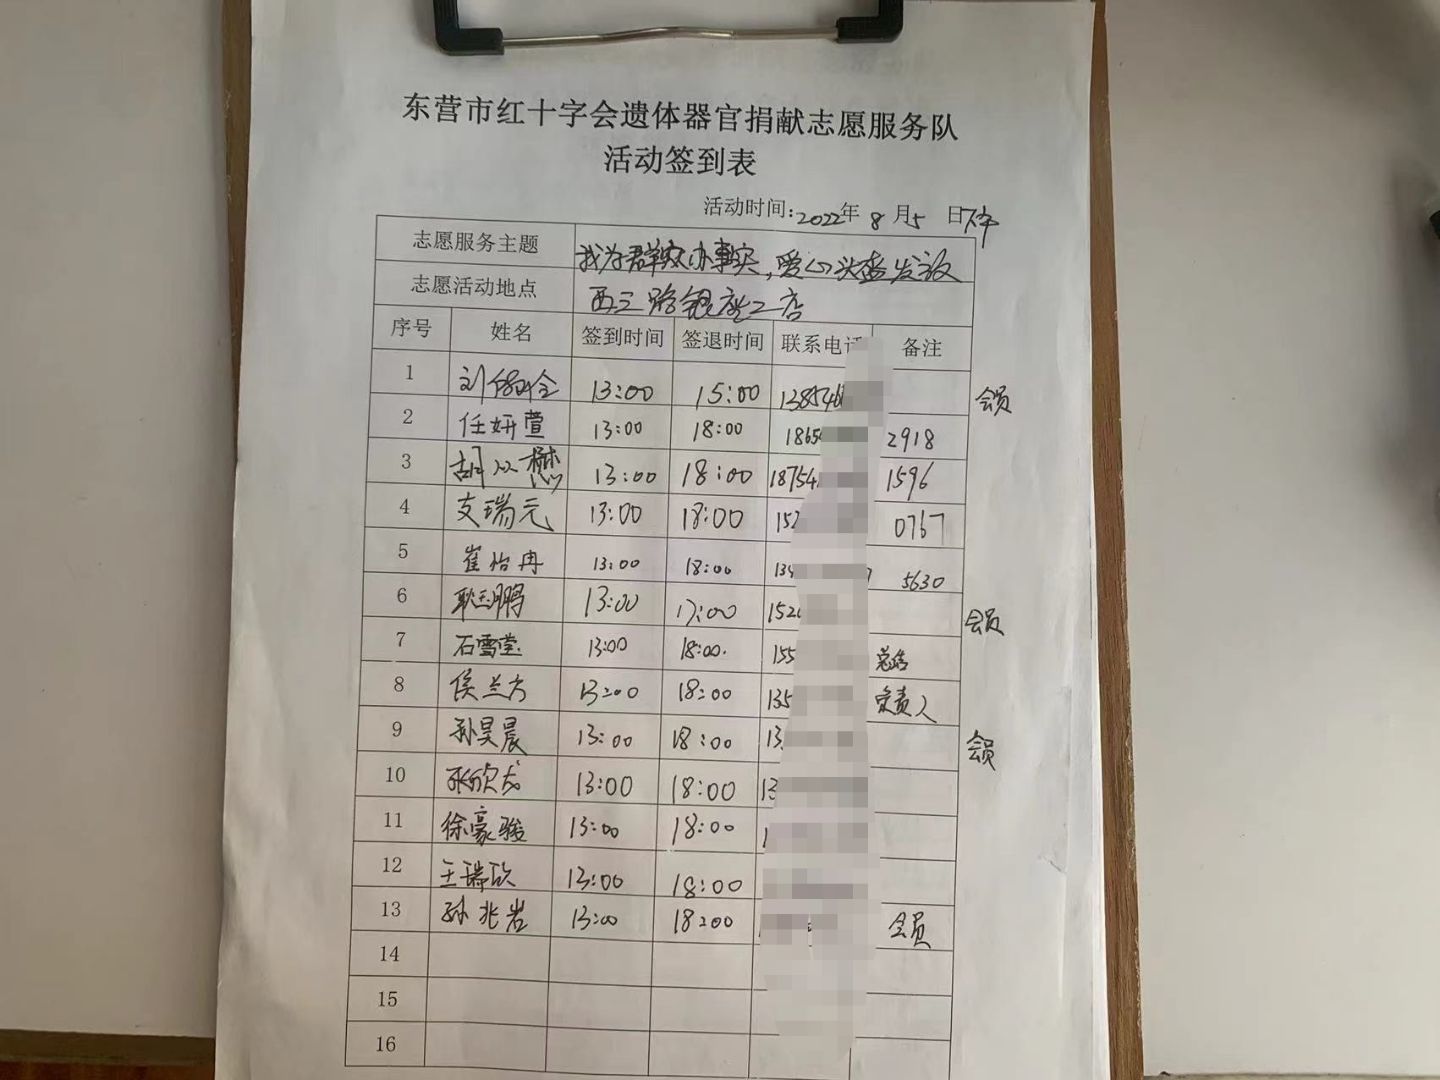 东营市红十字会遗体器官捐献志愿服务队
活动签到表
活动时间:2022年8月5日下午
志愿服务主题 我为群众办事实,爱心头盔发放
志愿活动地点 西三路银座二店
序号 姓名 签到时间 签退时间 联系电话 备注
1 刘 13:00 15:00 138546 会员
2 任妍萱 13:00 18:00 1865 2918
3 胡 懋 13:00 18:00 18754 1596
4 支瑞元 13:00 18:00 152 0767
5 崔怡冉 13:00 18:00 134 5630
6 耿玉鹏 13:00 17:00 1520 会员
7 石雪莹 13:00 18:00. 155 总结
8 侯兰方 13:00 18:00 135 负责人
9 孙昊晨 13:00 18:00 13 会员
10 张欣 13:00 18:00 13
11 徐豪骏 13:00 18:00 1
12 王瑞欣 13:00 18:00
13 孙兆岩 13:00 18:00 会员
14
15
16